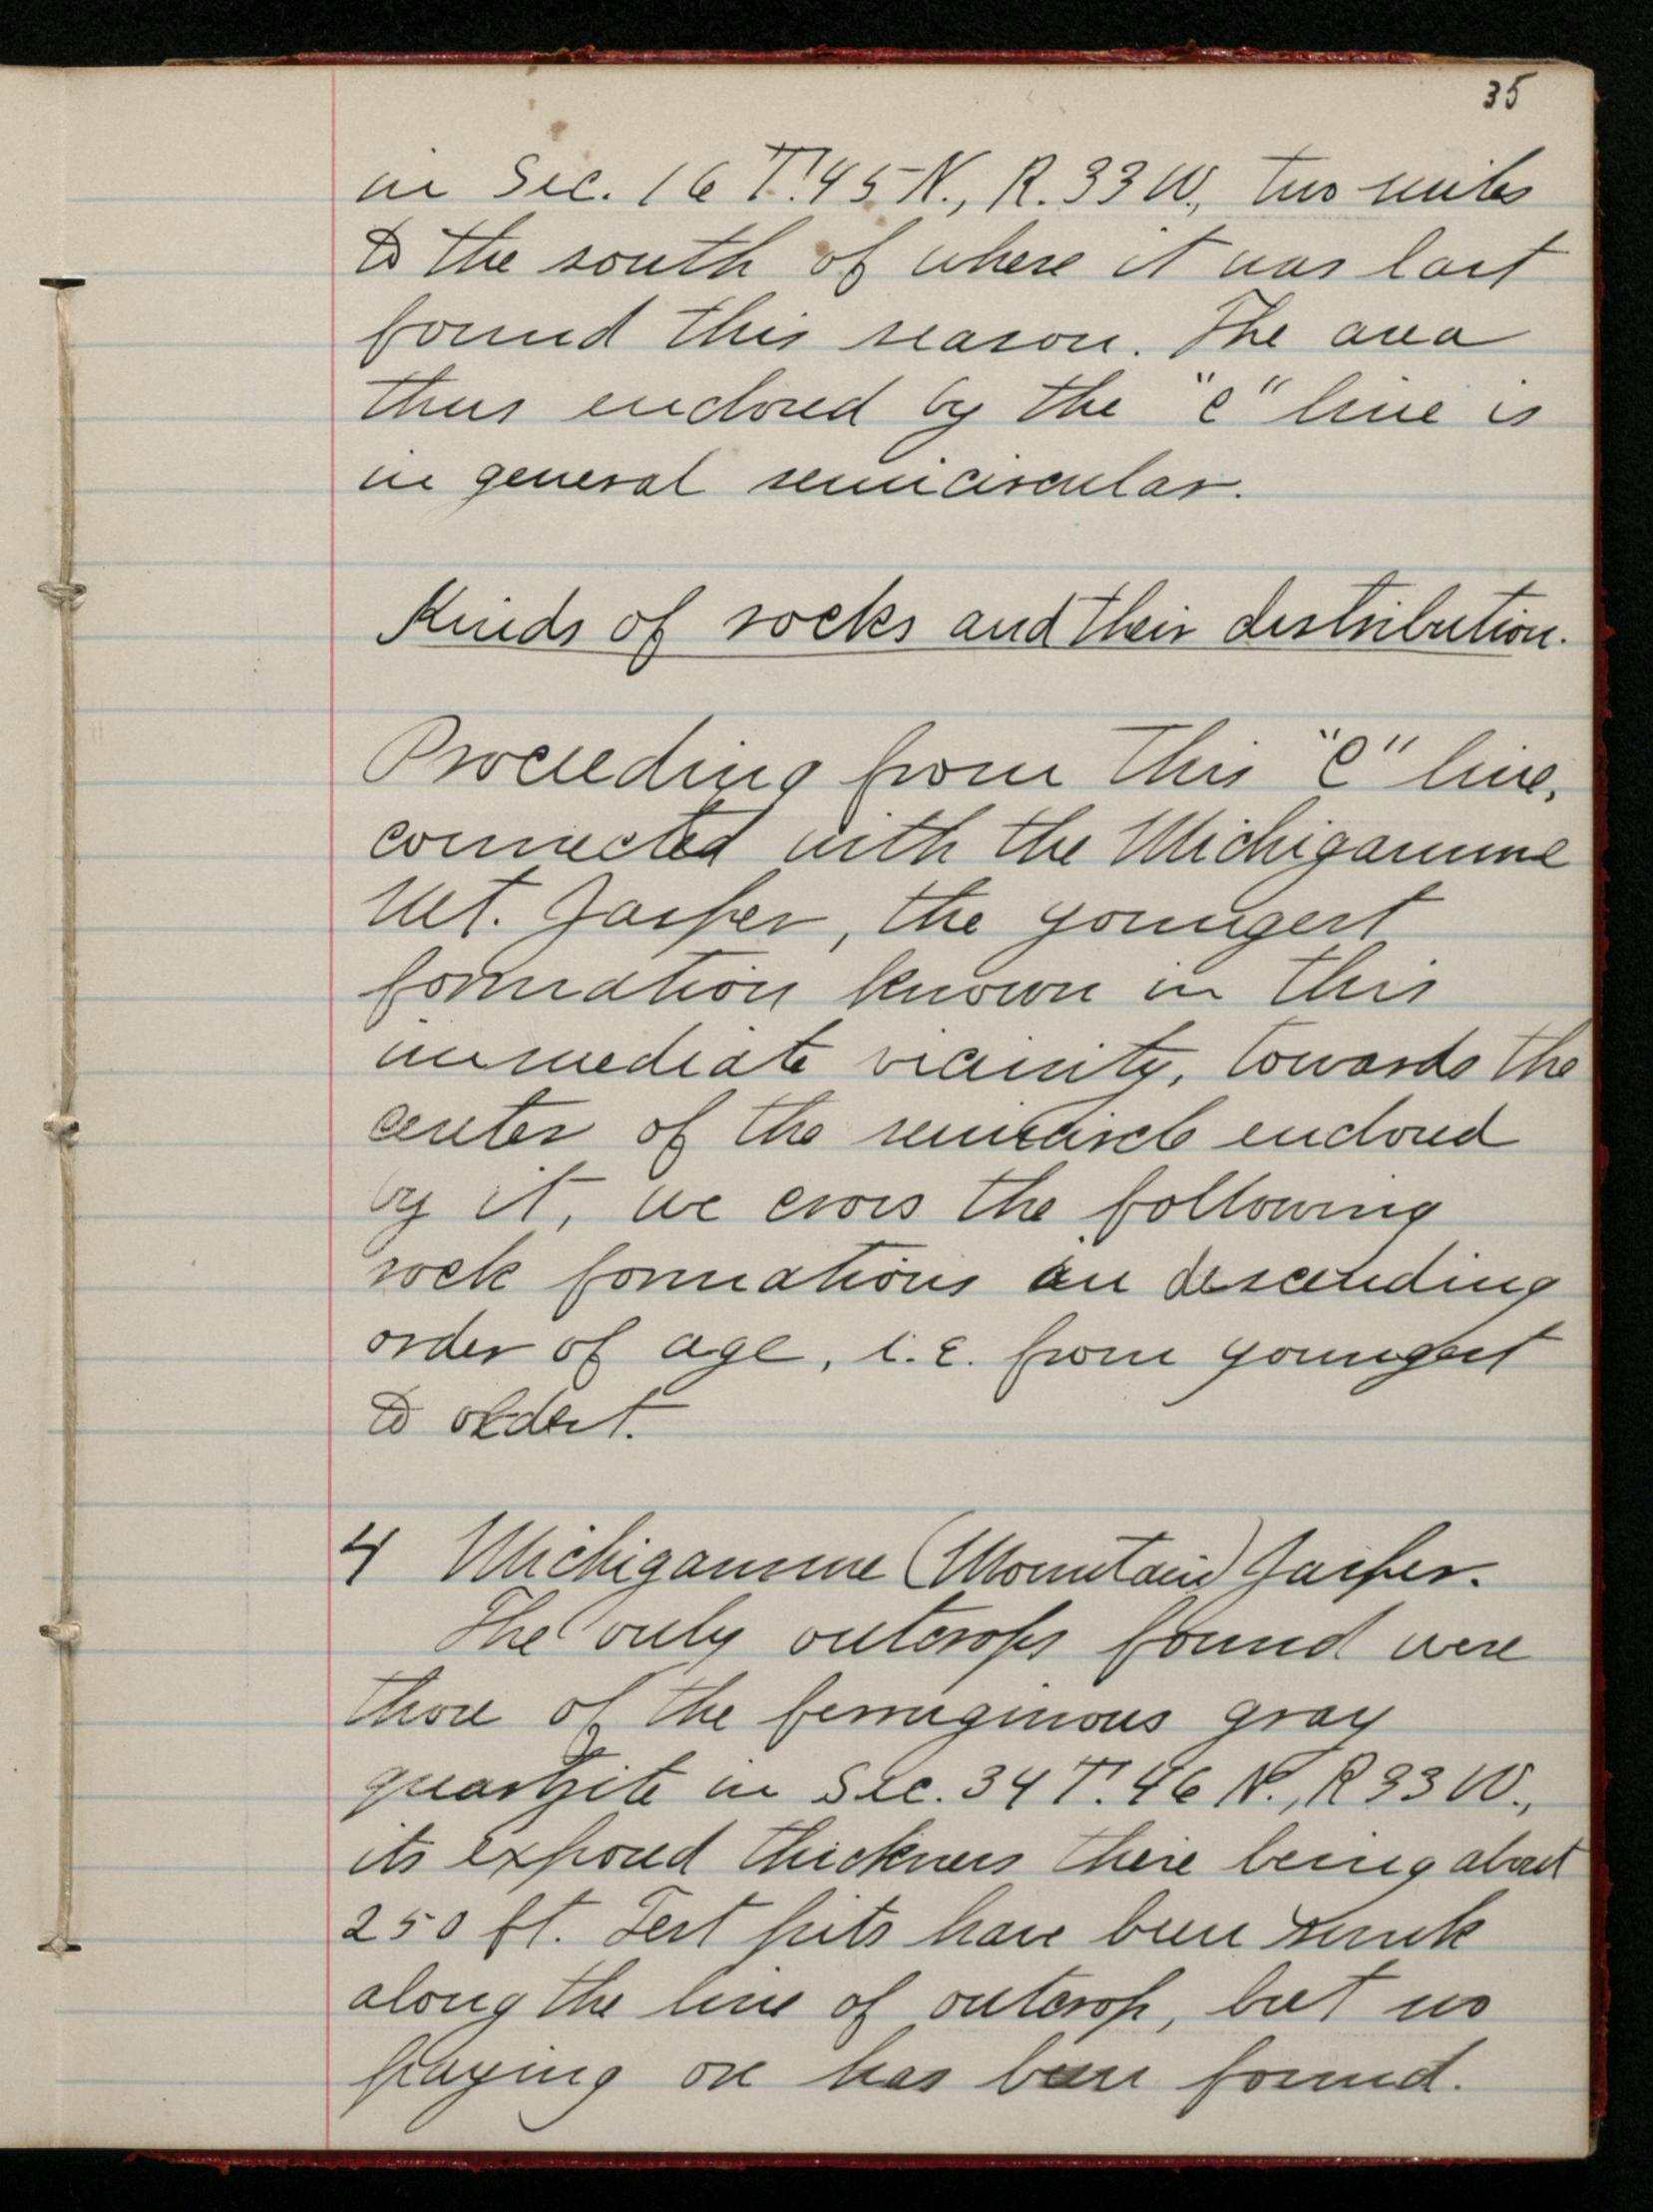 35
in Sec. 16 T. 45 N., R. 33 W., two miles
to the south of where it was last
found this season. The area
thus enclosed by the "C" line is
in general semicircular.
Kinds of rocks and their distribution.
Proceeding from this "C" line,
connected with the Michigamme
Mt. Jasper, the youngest
formation known in this
immediate vicinity, towards the
center of the semicircle enclosed
by it, we cross the following
rock formations in descending
order of age, i.e. from youngest
to oldest.
4 Michigamme (Mountain) Jasper.
The only outcrops found were
those of the ferruginous gray
quartzite in Sec. 34 T. 46 N., R 33 W.,
its exposed thickness there being about
250 ft. Test pits have been sunk
along the line of outcrop, but no
paying ore has been found.